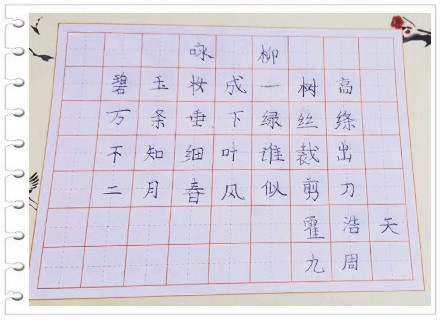 咏柳
碧玉妆成一树高
万条垂下绿丝绦
不知细叶谁裁出
二月春风似剪刀
霍浩天
九周